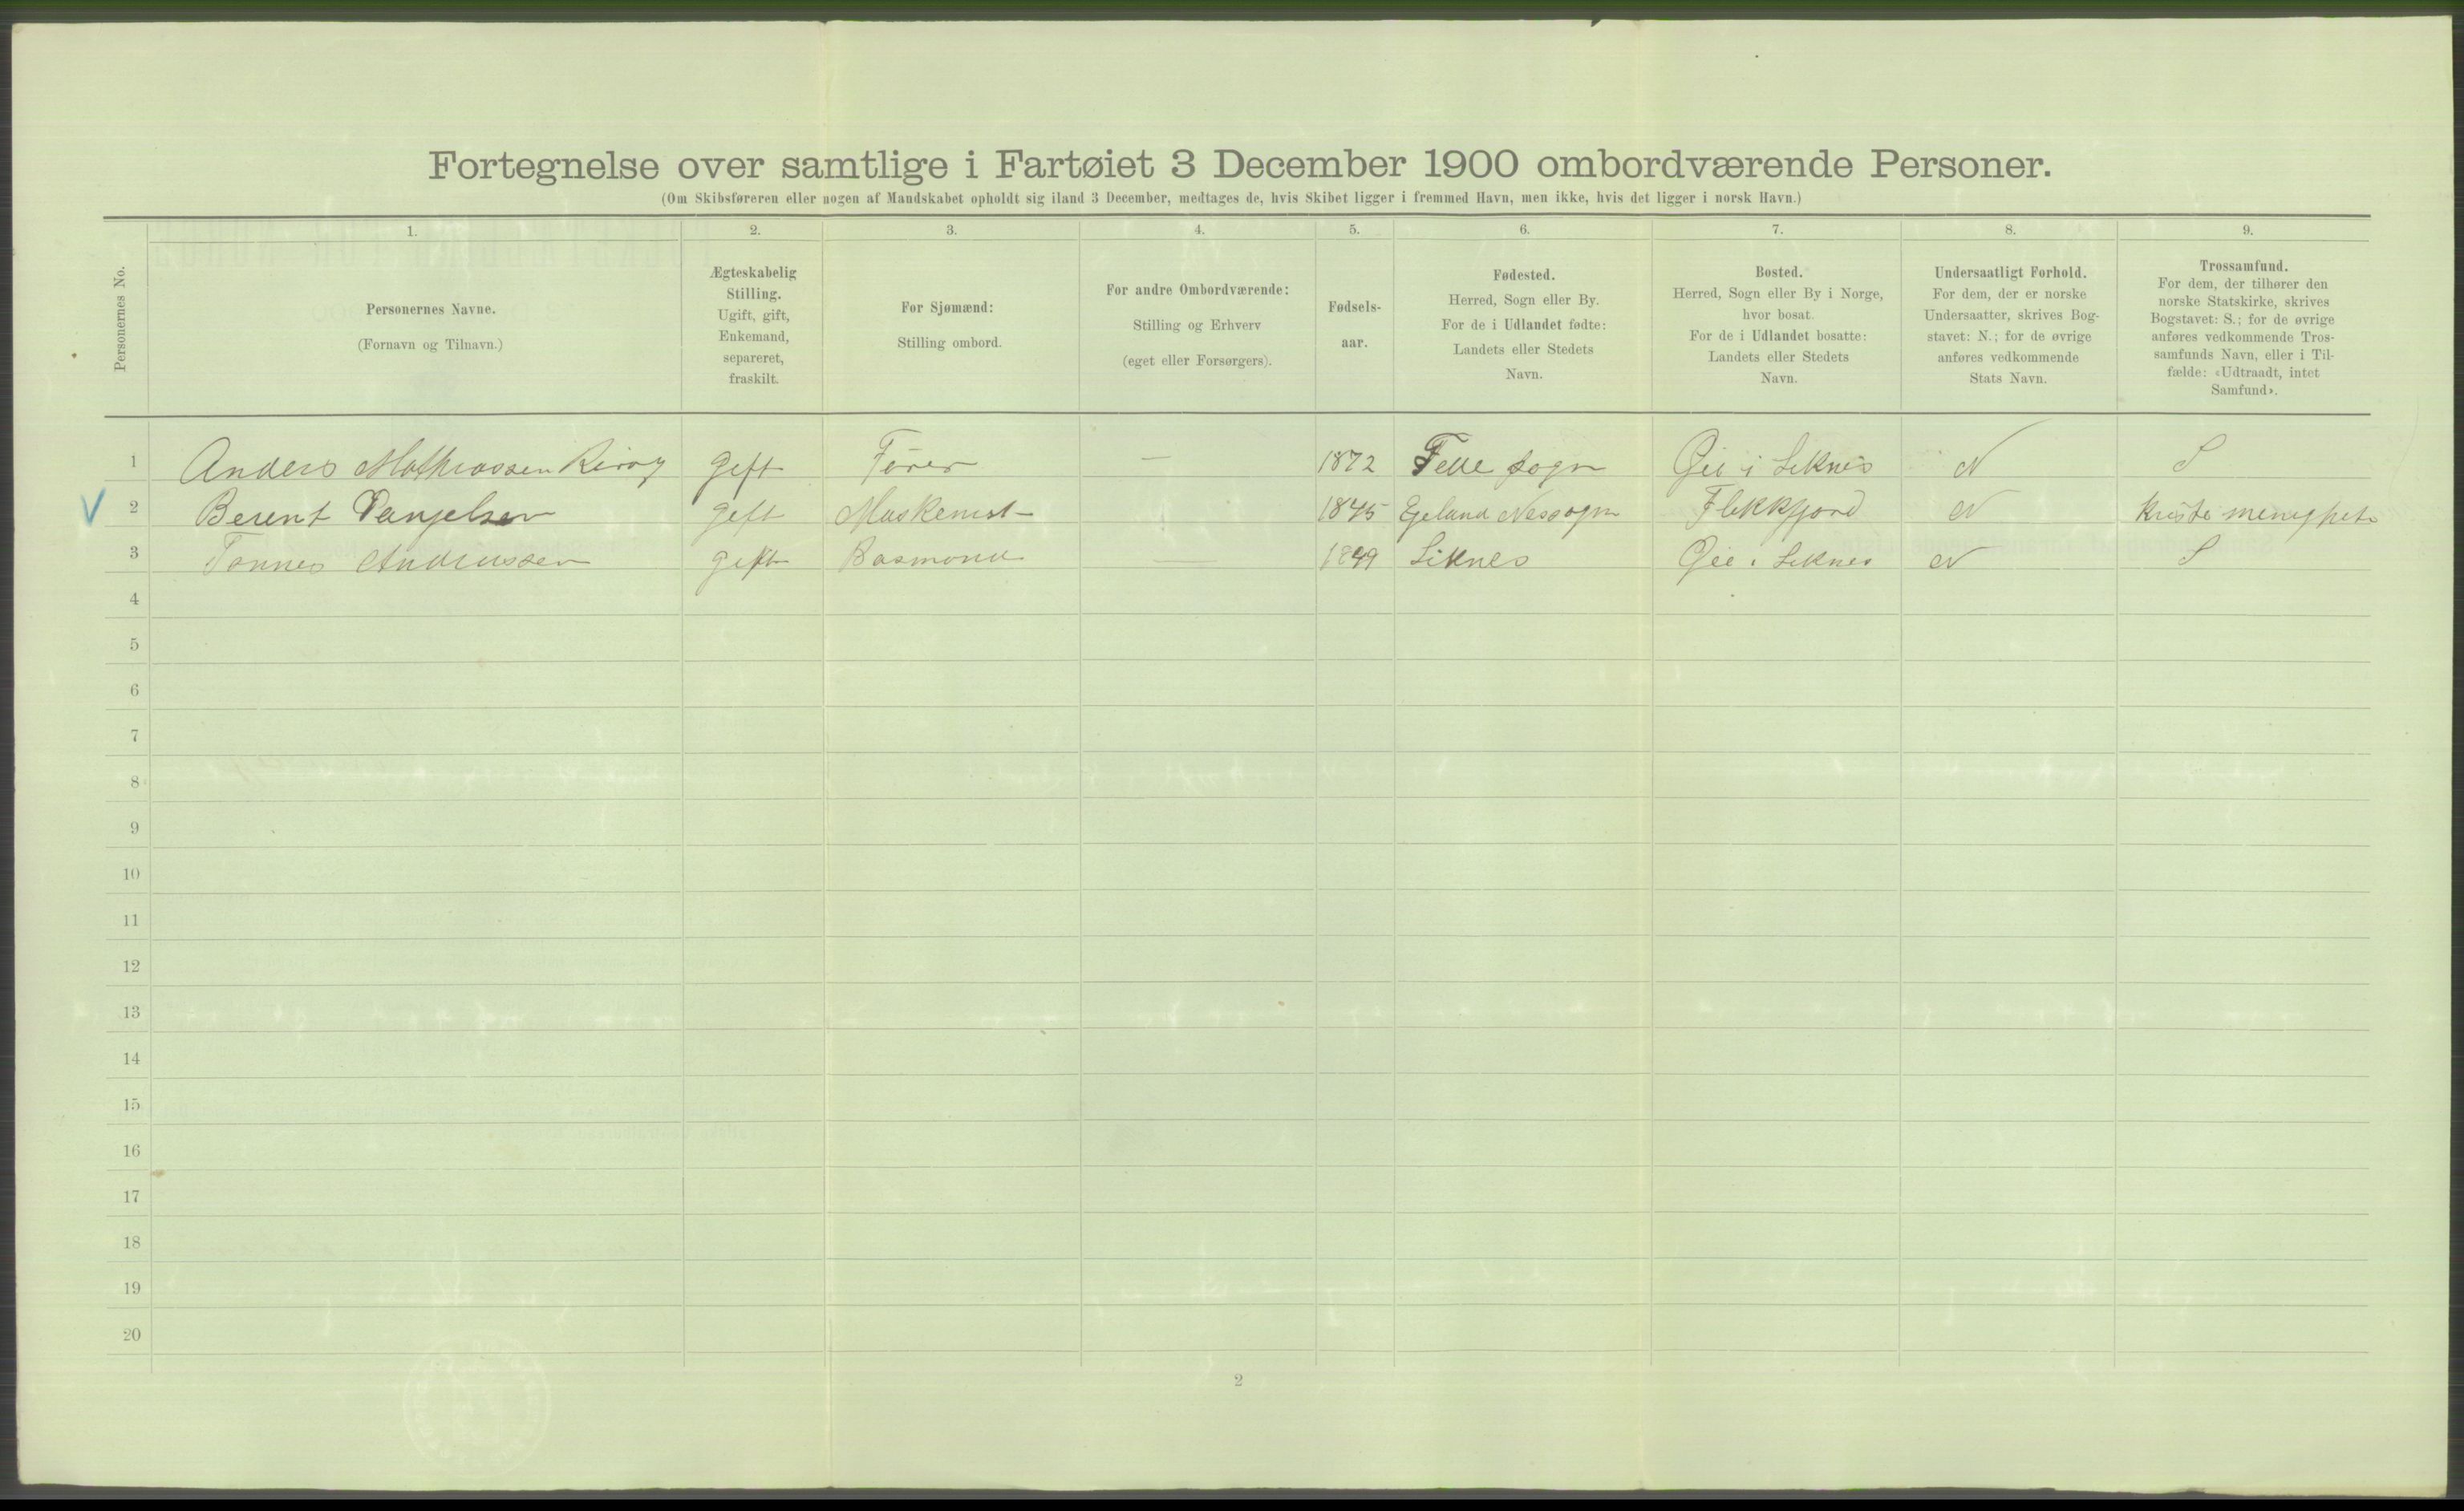 Fortegnelse over samtlige i Fartøiet 3 December 1900 ombordværende Personer.
(Om Skibsføreren eller nogen af Mandskabet opholdt sig iland 3 December, medtages de, hvis Skibet ligger i fremmed Havn, men ikke, hvis det ligger i norsk Havn.)
1. 2. 3. 4. 5. 6. 7. 8. 9.
Personernes No.
Personernes Navne.
(Fornavn og Tilnavn.)
Ægteskabelig
Stilling.
Ugift, gift,
Enkemand,
separeret,
fraskilt.
For Sjømænd:
Stilling ombord.
For andre Ombordværende:
Stilling og Erhverv
(eget eller Forsørgers).
Fødsels-
aar.
Fødested.
Herred, Sogn eller By.
For de i Udlandet fødte:
Landets eller Stedets
Navn.
Bosted.
Herred, Sogn eller By i Norge,
hvor bosat.
For de i Udlandet bosatte:
Landets eller Stedets
Navn.
Undersaatligt Forhold.
For dem, der er norske
Undersaatter, skrives Bog-
stavet: N.; for de øvrige
anføres vedkommende
Stats Navn.
Trossamfund.
For dem, der tilhører den
norske Statskirke, skrives
Bogstavet: S.; for de øvrige
anføres vedkommende Tros-
samfunds Navn, eller i Til-
fælde: «Udtraadt, intet
Samfund».
1 Anders gift Fører — 1872 sogn i N S
V 2 Berent Danjelsen gift 1845 Egeland Nessogn Flekkfjord N
3 Tønnes Andreassen gift 18 Liknes i Liknes N S
4
5
6
7
8
9
10
11
12
13
14
15
16
17
18
19
20
2